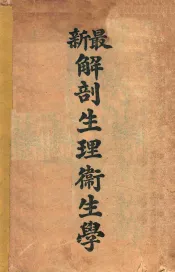 最新
解剖生理衞生學